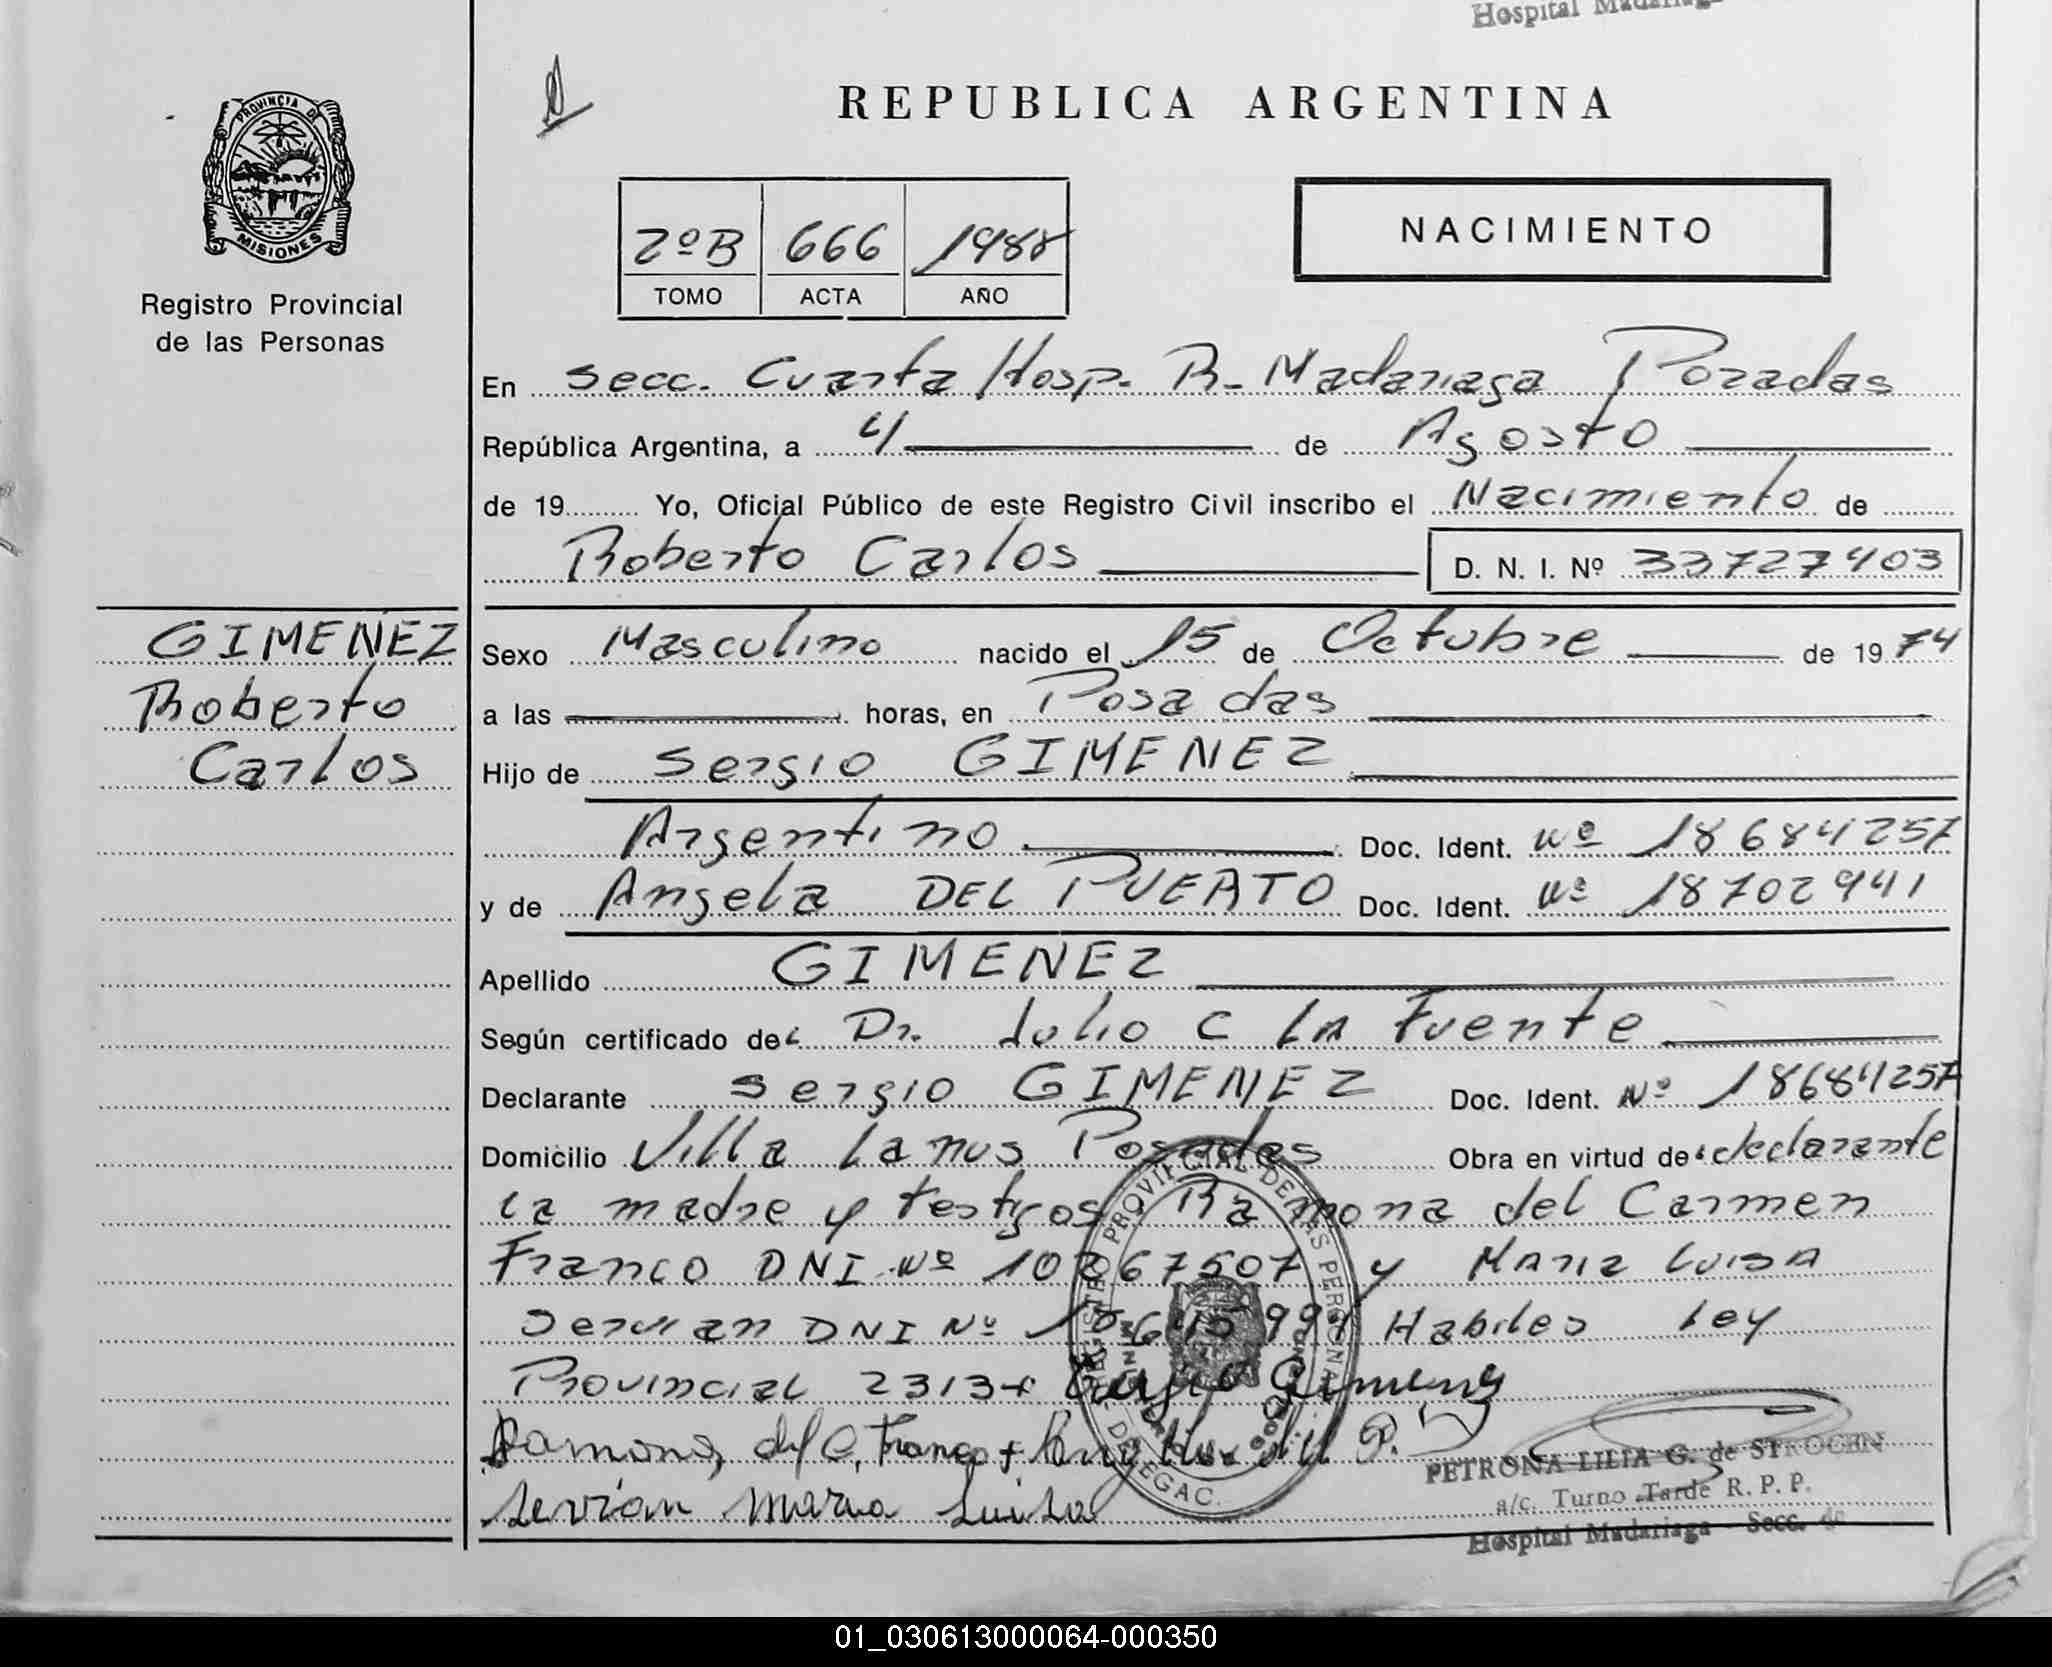 Hospital Madariaga
REPUBLICA ARGENTINA
PROVINCIA DE
MISIONES
Registro Provincial
de las Personas
2º B 666 1988
TOMO ACTA AÑO
NACIMIENTO
En Secc. Cuarta Hosp. R. Madariaga Posadas
República Argentina, a 4 de Agosto
de 19 Yo, Oficial Público de este Registro Civil inscribo el Nacimiento de
Roberto Carlos D. N. I. Nº 33727403
GIMENEZ
Roberto
Carlos
Sexo Masculino nacido el 15 de Octubre de 1974
a las horas, en Posadas
Hijo de Sergio GIMENEZ
Argentino Doc. Ident. Nº 18684257
y de Angela DEL PUERTO Doc. Ident. Nº 18702941
Apellido GIMENEZ
Según certificado del Dr. Julio C La Fuente
Declarante Sergio GIMENEZ Doc. Ident. Nº 18684257
Domicilio Villa Lanus Posadas Obra en virtud de declarante
la madre y testigos Ramona del Carmen
Franco DNI Nº 10267507 y Maria Luisa
Servian DNI Nº Habiles Ley
Provincial 2313+ Sergio Gimenez
Ramona del C. Franco +
Servian Maria Luisa
REGISTRO PROVINCIAL DE LAS PERSONAS
PETRONA LILIA G. de STROCEN
a/c. Turno Tarde R. P. P.
Hospital Madariaga - Secc. 4a
01_030613000064-000350